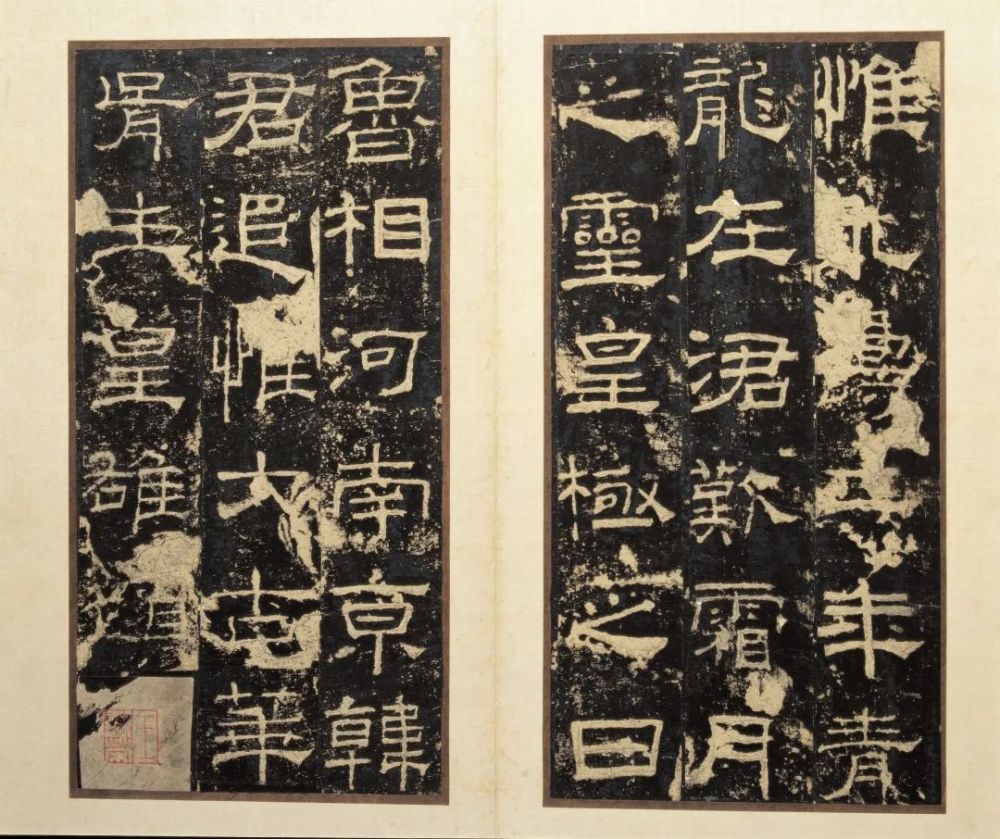 惟永壽二年青
龍在涒歎霜月
之靈皇極之日
魯相河南京韓
君追惟大古華
胥生皇雄顏